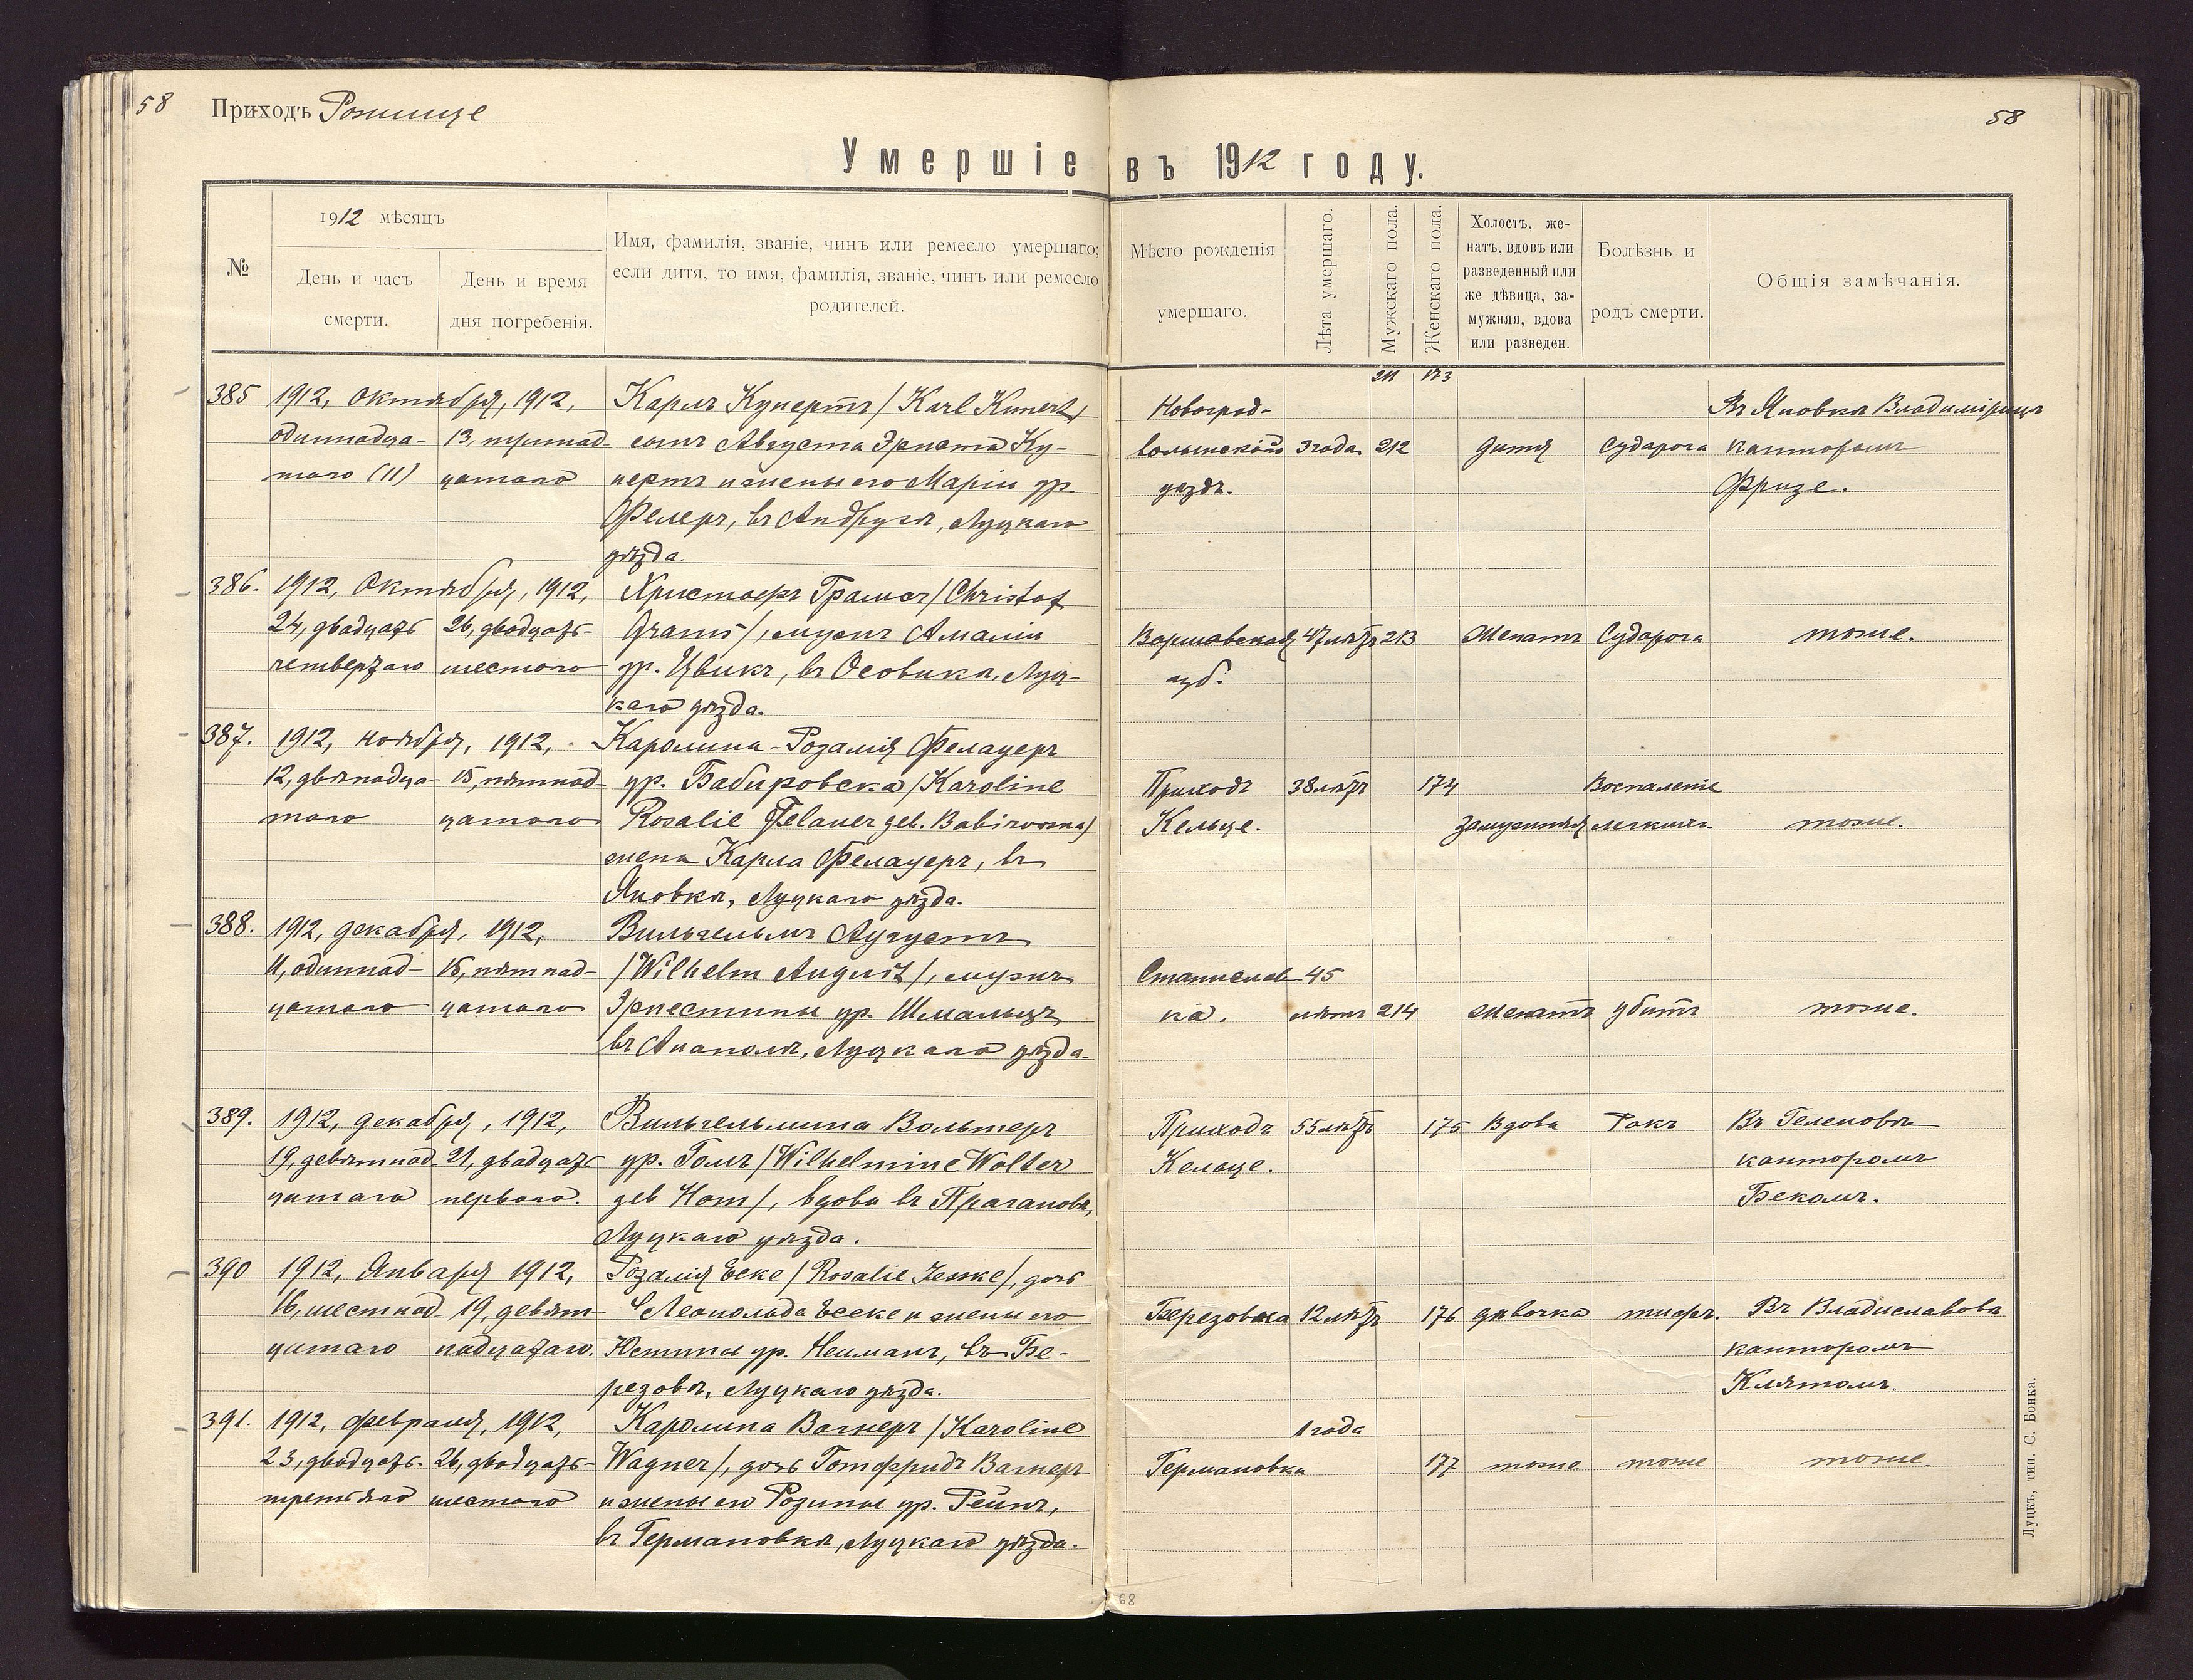 58 Приходъ Рожище
58
Умершіе въ 1912 году.
№
1912 мѣсяцъ
День и часъ
смерти.
День и время
дня погребенія.
Имя, фамилія, званіе, чинъ или ремесло умершаго;
если дитя, то имя, фамилія, званіе, чинъ или ремесло
родителей.
Мѣсто рожденія
умершаго.
Лѣта умершаго.
Мужскаго пола.
Женскаго пола.
Холостъ, же-
натъ, вдовъ или
разведенный или
же дѣвица, за-
мужняя, вдова
или разведен.
Болѣзнь и
родъ смерти.
Общія замѣчанія.
211 173
385 1912, Октября, 1912, Карлъ Кунертъ / Karl Kunert/ Новоград- Въ Яновкѣ Владимірецъ
одиннадца- 13, тринад- сынъ Августа Эрнста Ку- волынскій 3 года. 212 дитя Сударога канторомъ
таго (11) цатаго нертъ и жены его Маріи ур. уѣздъ. Фризе.
Фелеръ, въ Андругѣ, Луцкаго
уѣзда.
386. 1912, Октября, 1912, Христофъ Грамсъ / Christof
24, двадцать 26, двадцать- Grams /, мужъ Амаліи Варшавская 47 лѣтъ 213 Женатъ Сударога тоже.
четвертаго шестого ур. Цвикъ, въ Осовикѣ, Луц- губ.
каго уѣзда.
387. 1912, ноября, 1912, Каролина-Розалія Фелауеръ
12, двѣнадца- 15, пятнад- ур. Бабировска / Karoline Приходъ 38 лѣтъ 174 Воспаленіе
таго цатаго Rosalie Felauer geb. Babirowska/ Кельце. замужняя легкихъ. тоже.
жена Карла Фелауеръ, въ
Яновкѣ, Луцкаго уѣзда.
388. 1912, декабря, 1912, Вильгельмъ Аугустъ
11, одиннад- 15, пятнад- / Wilhelm August /, мужъ Станислав- 45
цатаго цатаго Эрнестины ур. Шмальцъ, ка. лѣтъ 214 Женатъ убитъ тоже.
въ Анаполѣ, Луцкаго уѣзда.
389. 1912, декабря, 1912, Вильгельмина Вольтеръ Приходъ 55 лѣтъ 175 Вдова Ракъ Въ Геленовѣ
19, девятнад- 21, двадцать ур. Гомъ / Wilhelmine Wolter Кельце. канторомъ
цатаго перваго. geb Hom /, вдова въ Прагановѣ, Бекомъ.
Луцкаго уѣзда.
390 1912, Января 1912, Розалія Еске / Rosalie Jeske /, дочь
16, шестнад- 19, девят- Леопольда Еске и жены его Березовка 12 лѣтъ 176 дѣвочка тифъ. Въ Владиславовѣ
цатаго надцатаго. Юстины ур. Нейманъ, въ Бе- канторомъ
резовѣ, Луцкаго уѣзда. Клятомъ.
391. 1912, февраля, 1912, Каролина Вагнеръ / Karoline 1 года
23, двадцать- 26, двадцать- Wagner /, дочь Готфридъ Вагнеръ Германовка 177 тоже тоже тоже.
третьяго шестого и жены его Розины ур. Рейнъ,
въ Германовкѣ, Луцкаго уѣзда.
Луцкъ, тип. С. Бонка.
68